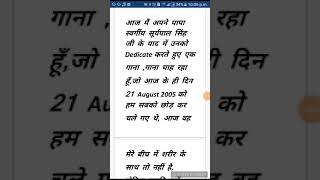 10:06 p.m.
आज मैं अपने पापा
स्वर्गीय सूर्यपाल सिंह
जी के याद में उनको
Dedicate करते हुए एक
गाना ,गाना चाह रहा
हूँ,जो आज के ही दिन
21 August 2005 को
हम सबको छोड़ कर
चले गए थे, आज वह
मेरे बीच में शरीर के
साथ तो नहीं है,